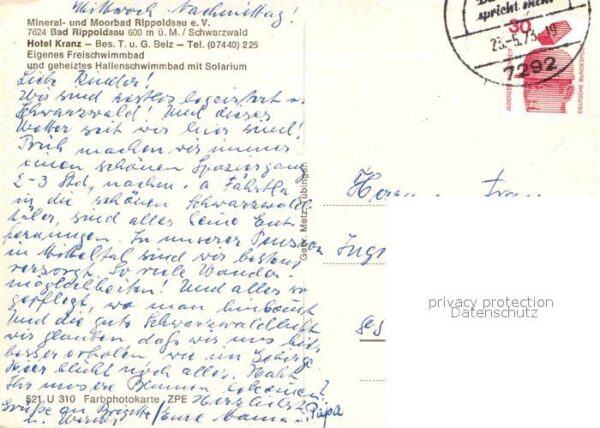 Mittwoch Nachmittag!
Mineral- und Moorbad Rippoldsau e. V.
7624 Bad Rippoldsau 600 m ü. M. / Schwarzwald
Hotel Kranz – Bes. T. u. G. Belz – Tel. (07440) 225
Eigenes Freischwimmbad
und geheiztes Hallenschwimmbad mit Solarium
Liebe Kinder!
Wir sind restlos begeistert v.
Schwarzwald! Und dieses
Wetter seit wir hier sind!
Früh machen wir immer
einen schönen Spaziergang
2-3 Std, nachm. a Fahrtle
in die schönen Schwarzwald-
täler, sind alles keine Ent-
fernungen. In unserer Pension
in Mitteltal sind wir bestens
versorgt. So viele Wander-
möglichkeiten! Und alles so
gepflegt, wo man hinkommt
Und die gute Schwarzwaldluft
wir glauben daß wir uns hier
besser erholen, wie im Gebirge.
Hier blüht noch alles. Habt
Ihr unsere Blumen bekommen?
521 U 310 Farbphotokarte ZPE Herzlichst
Grüße an Brigitte / Eure Mama u. Papa
u. Werner
Gebr. Metz, Tübingen
spricht mehr
23.-5.73-19
7292
30
JEDERZEIT
DEUTSCHE BUNDESPOST
Herrn
Frau
Ings
privacy protection
Datenschutz